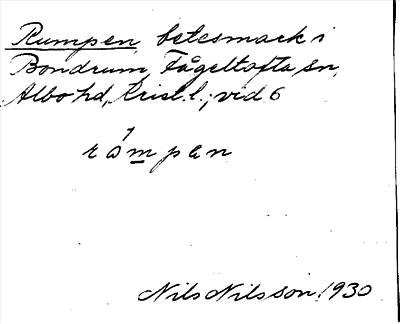 Rumpen betesmark i
Bondrum, Fågeltofta sn,
Albo hd, Krist. l.; vid 6
råmpen
Nils Nilsson 1930